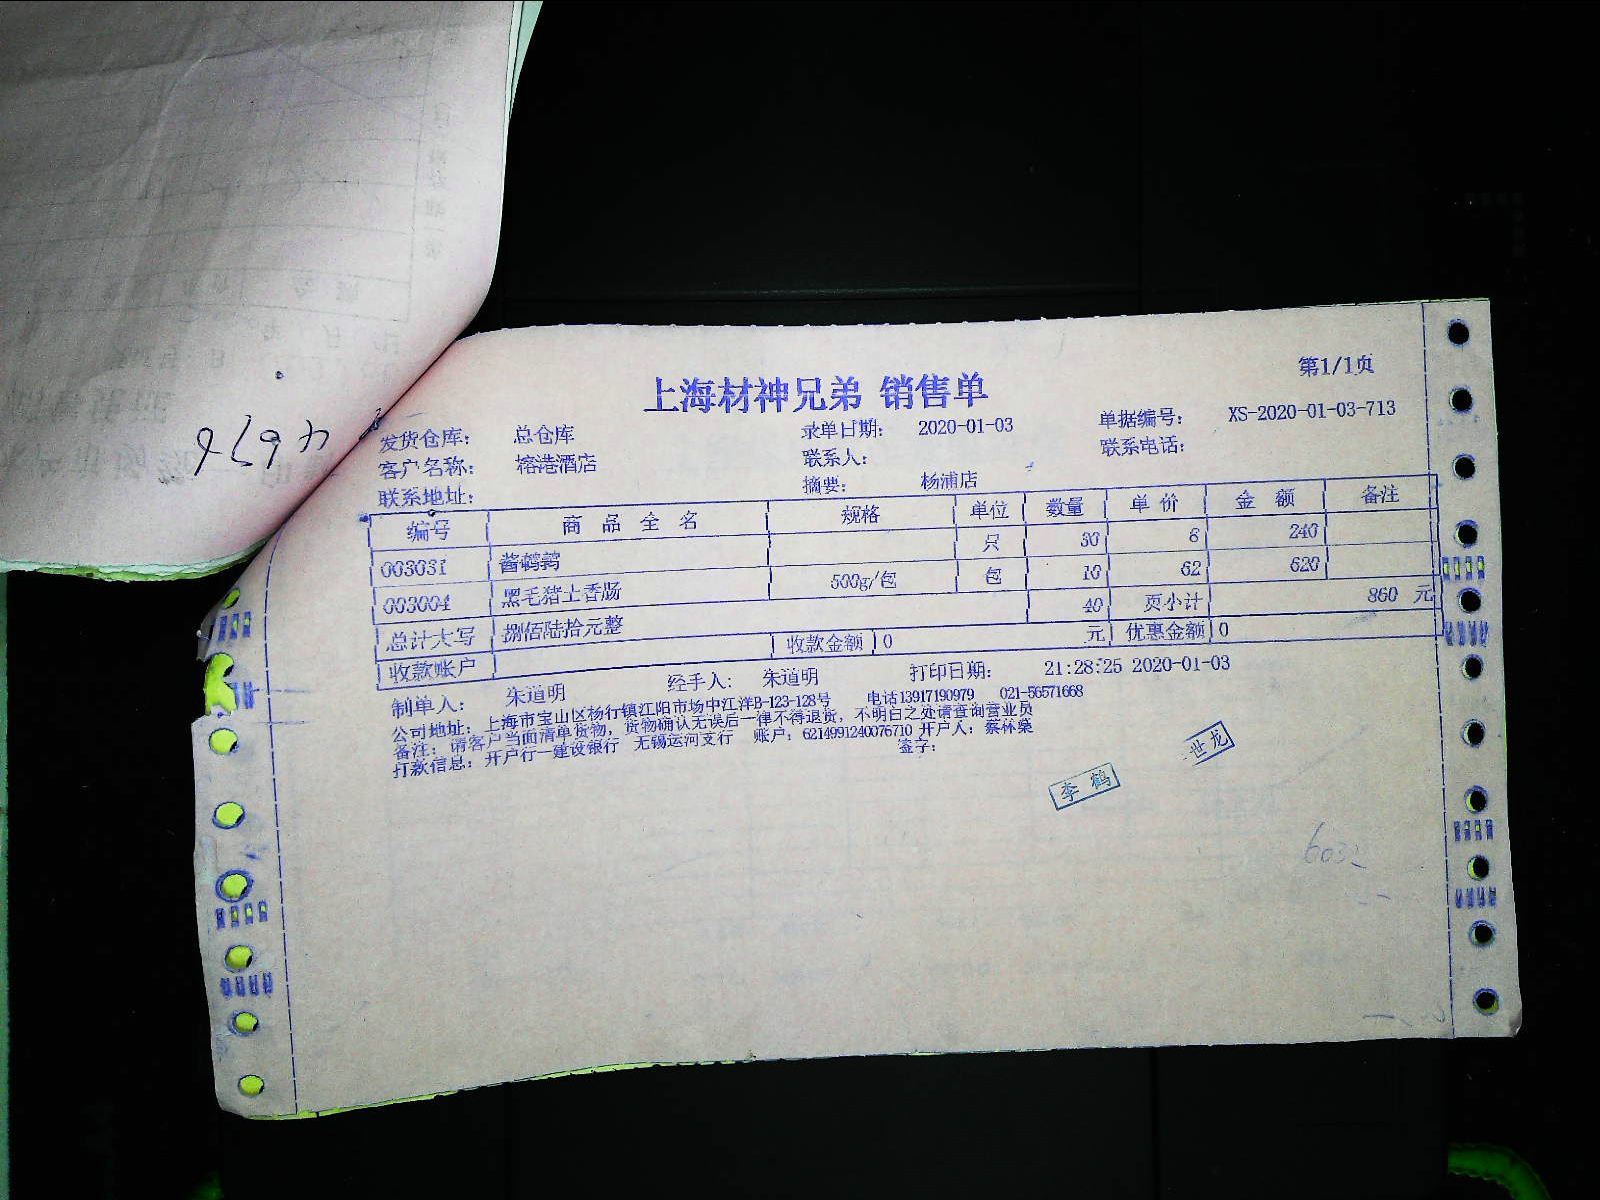 第1/1页
上海材神兄弟 销售单
发货仓库: 总仓库 录单日期: 2020-01-03 单据编号: XS-2020-01-03-713
客户名称: 榕港酒店 联系人: 联系电话:
联系地址: 摘要: 杨浦店
编号 商品全名 规格 单位 数量 单价 金额 备注
003031 酱鹌鹑 只 30 8 240
003004 黑毛猪土香肠 500g/包 包 10 62 620
总计大写 捌佰陆拾元整 40 页小计 860 元
收款账户 收款金额 0 元 优惠金额 0
制单人: 朱道明 经手人: 朱道明 打印日期: 21:28:25 2020-01-03
公司地址: 上海市宝山区杨行镇江阳市场中江洋B-123-128号 电话13917190979 021-56571668
备注: 请客户当面清单货物, 货物确认无误后一律不得退货, 不明白之处请查询营业员
打款信息: 开户行—建设银行 无锡运河支行 账户: 6214991240076710 开户人: 蔡林燊
签字:
李鹤
世龙